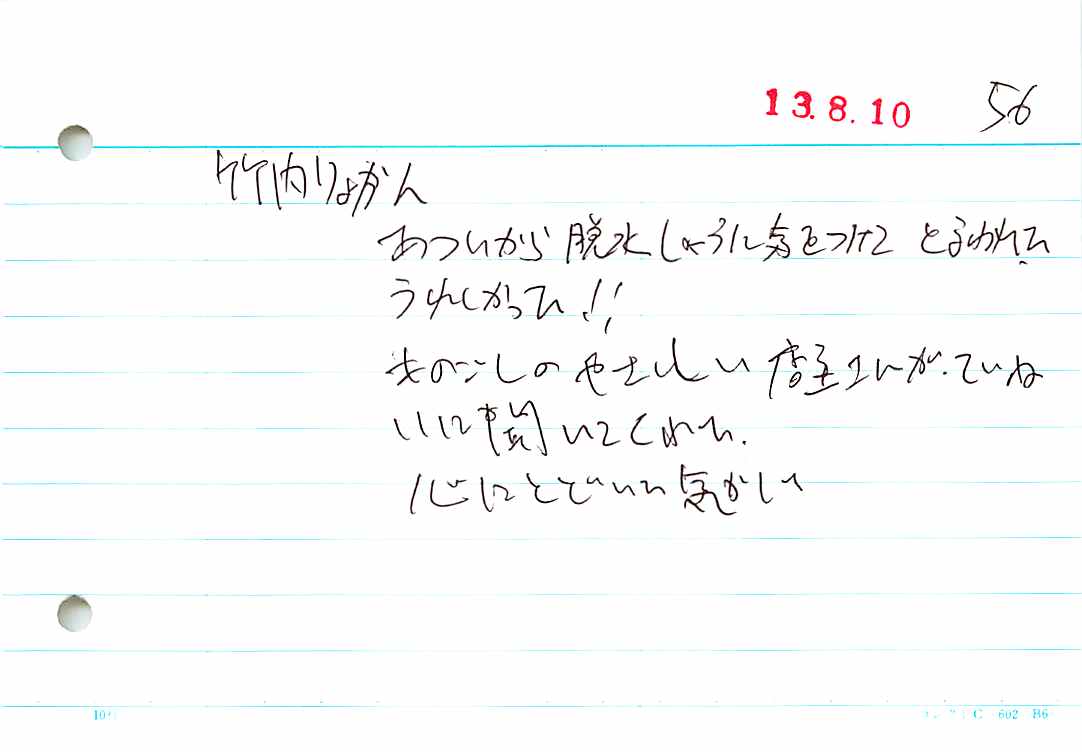 13.8.10 56
竹内りょかん
あついから脱水しょうに気をつけて と言われて
うれしかった!!
ものごしのやさしい店主さんが、ていね
いに聞いてくれた、
心にとどいた気がした
602 B6